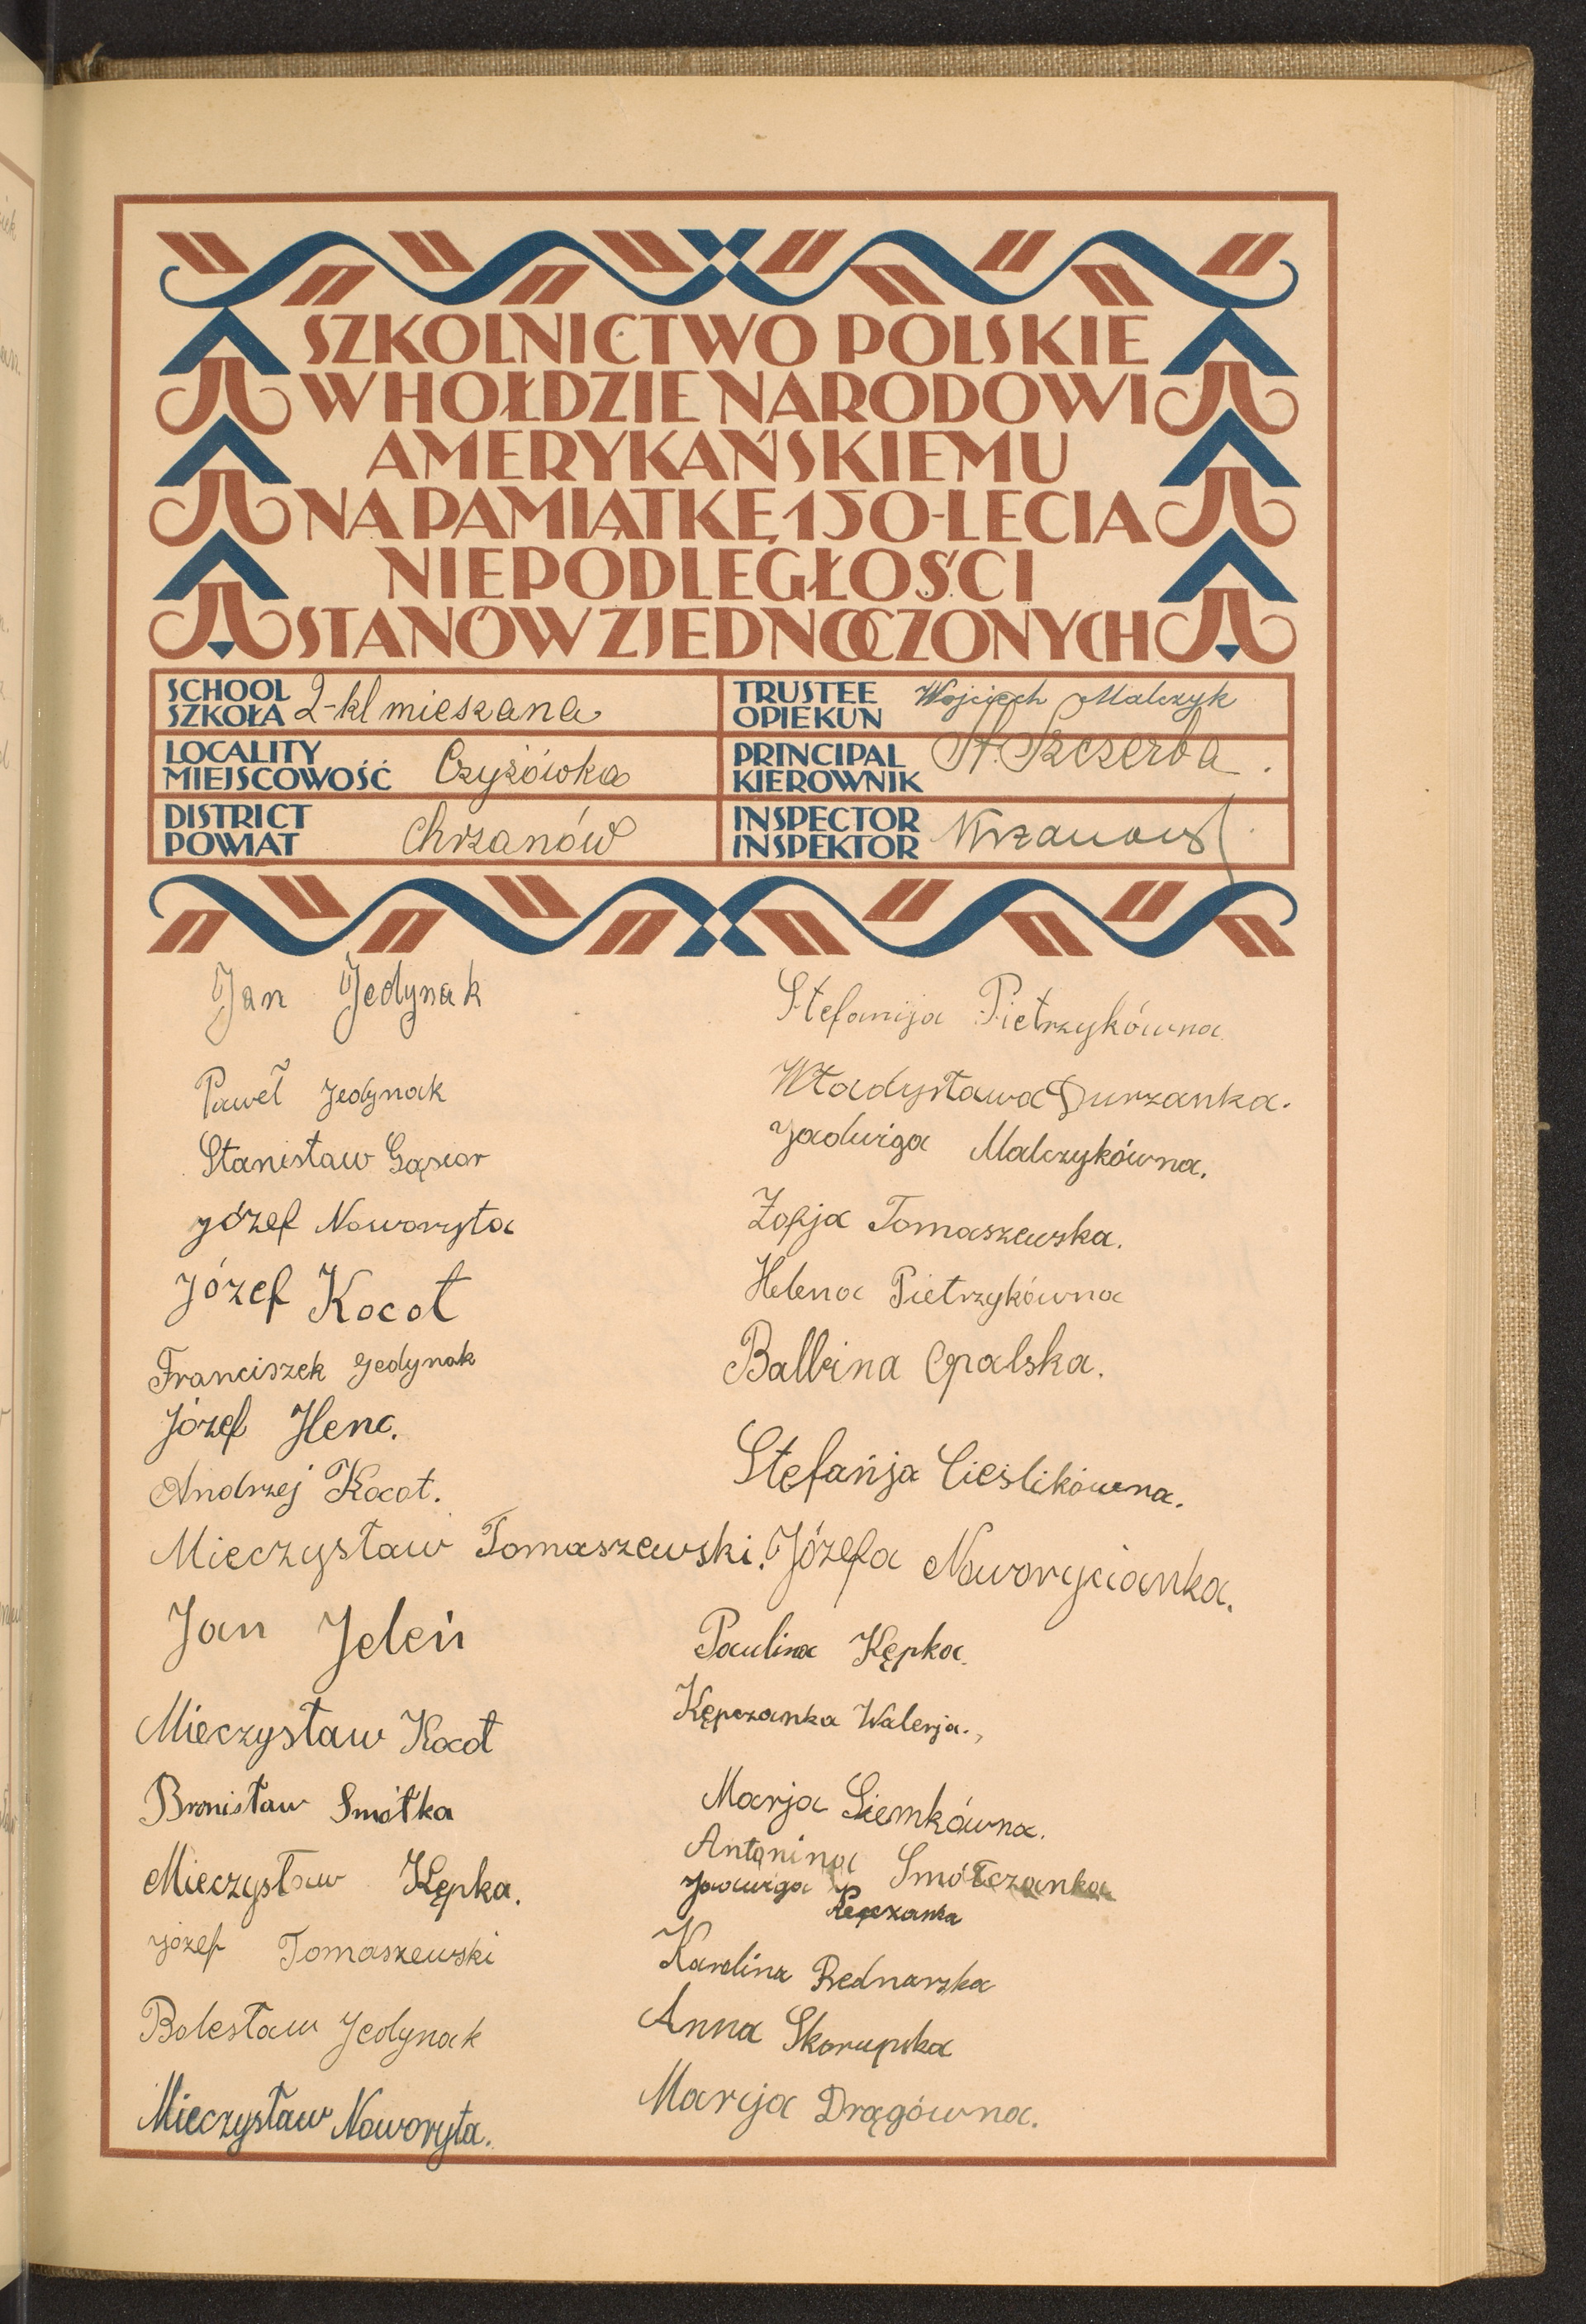 SZKOLNICTWO POLSKIE
W HOŁDZIE NARODOWI
AMERYKAŃSKIEMU
NA PAMIĄTKĘ 150-LECIA
NIEPODLEGŁOŚCI
STANÓW ZJEDNOCZONYCH
SCHOOL
SZKOŁA 2-kl mieszana
TRUSTEE
OPIEKUN Wojciech Malczyk
LOCALITY
MIEJSCOWOŚĆ Czyżówka
PRINCIPAL
KIEROWNIK St. Szczerba.
DISTRICT
POWIAT Chrzanów
INSPECTOR
INSPEKTOR
Jan Jedynak
Paweł Jedynak
Stanisław Gąsior
Józef Noworyta
Józef Kocot
Franciszek Jedynak
Józef Henc.
Andrzej Kocot.
Mieczysław Tomaszewski.
Jan Jeleń
Mieczysław Kocot
Bronisław Smółka
Mieczysław Kępka.
Józef Tomaszewski
Bolesław Jedynak
Mieczysław Noworyta.
Stefanija Pietrzykówna
Władysława Durzanka.
Jadwiga Malczykówna.
Zofja Tomaszewska.
Helena Pietrzykówna
Balbina Opalska.
Stefańja Cieślikówna.
Józefa Noworycianka.
Paulina Kępka.
Kępczanka Walerja.,
Marja Siemkówna.
Antonina Smółczanka
Jadwiga Kępczanka
Karolina Bednarska
Anna Skorupska
Marcja Drągówna.